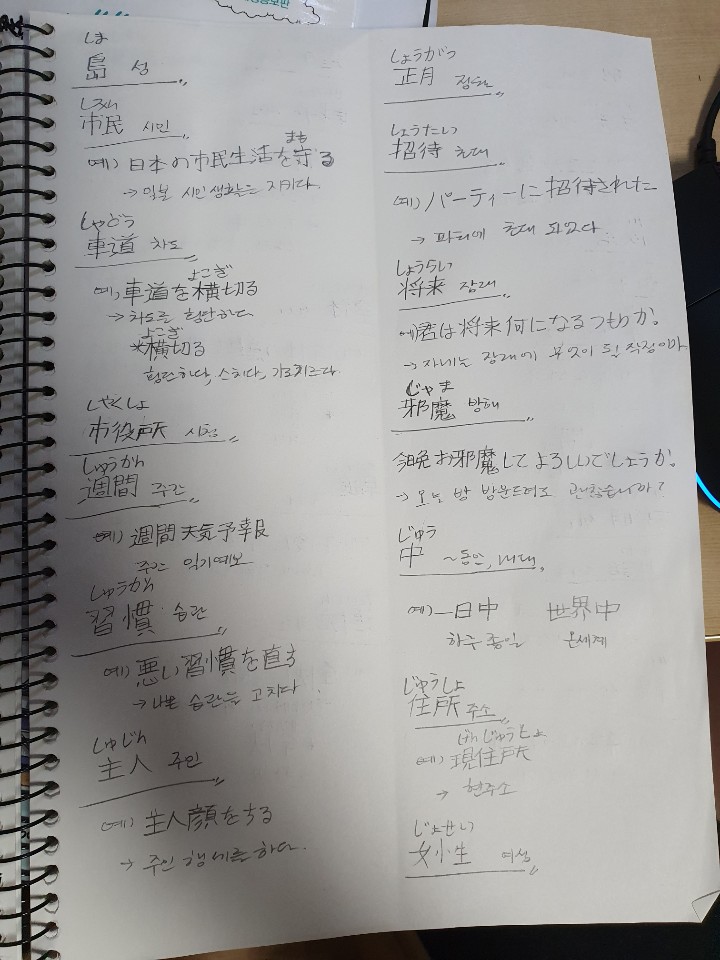 しま
島 섬
しみん
市民 시민
まも
예) 日本の市民生活を守る
→ 일본 시민 생활을 지키다.
しゃどう
車道 차도
よこぎ
예) 車道を横切る
→ 차도를 횡단하다
よこぎ
*横切る
횡단하다, 스치다, 가로지르다.
しやくしょ
市役所 시청
しゅうかん
週間 주간
예) 週間天気予報
주간 일기예보
しゅうかん
習慣 습관
예) 悪い習慣を直す
→ 나쁜 습관을 고치다
しゅじん
主人 주인
예) 主人顔をする
→ 주인 행세를 하다.
しょうがつ
正月 정월
しょうたい
招待 초대
예) パーティーに招待された
→ 파티에 초대 되었다
しょうらい
将来 장래
예) 君は将来何になるつもりか.
→ 자네는 장래에 무엇이 될 작정이야
じゃま
邪魔 방해
今晩お邪魔してよろしいでしょうか.
→ 오늘 밤 방문드려도 괜찮습니까?
じゅう
中 ~동안, 내내,
예) 一日中 世界中
하루 종일 온세계
じゅうしょ
住所 주소
げんじゅうしょ
예) 現住所
→ 현주소
じょせい
女性 여성